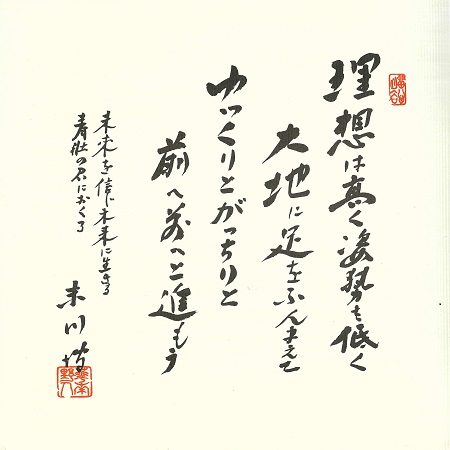 理想は高く姿勢も低く
大地に足をふんまえて
ゆっくりとがっちりと
前へ前へと進もう
未来を信じ未来に生きる
青壮の君におくる
末川博